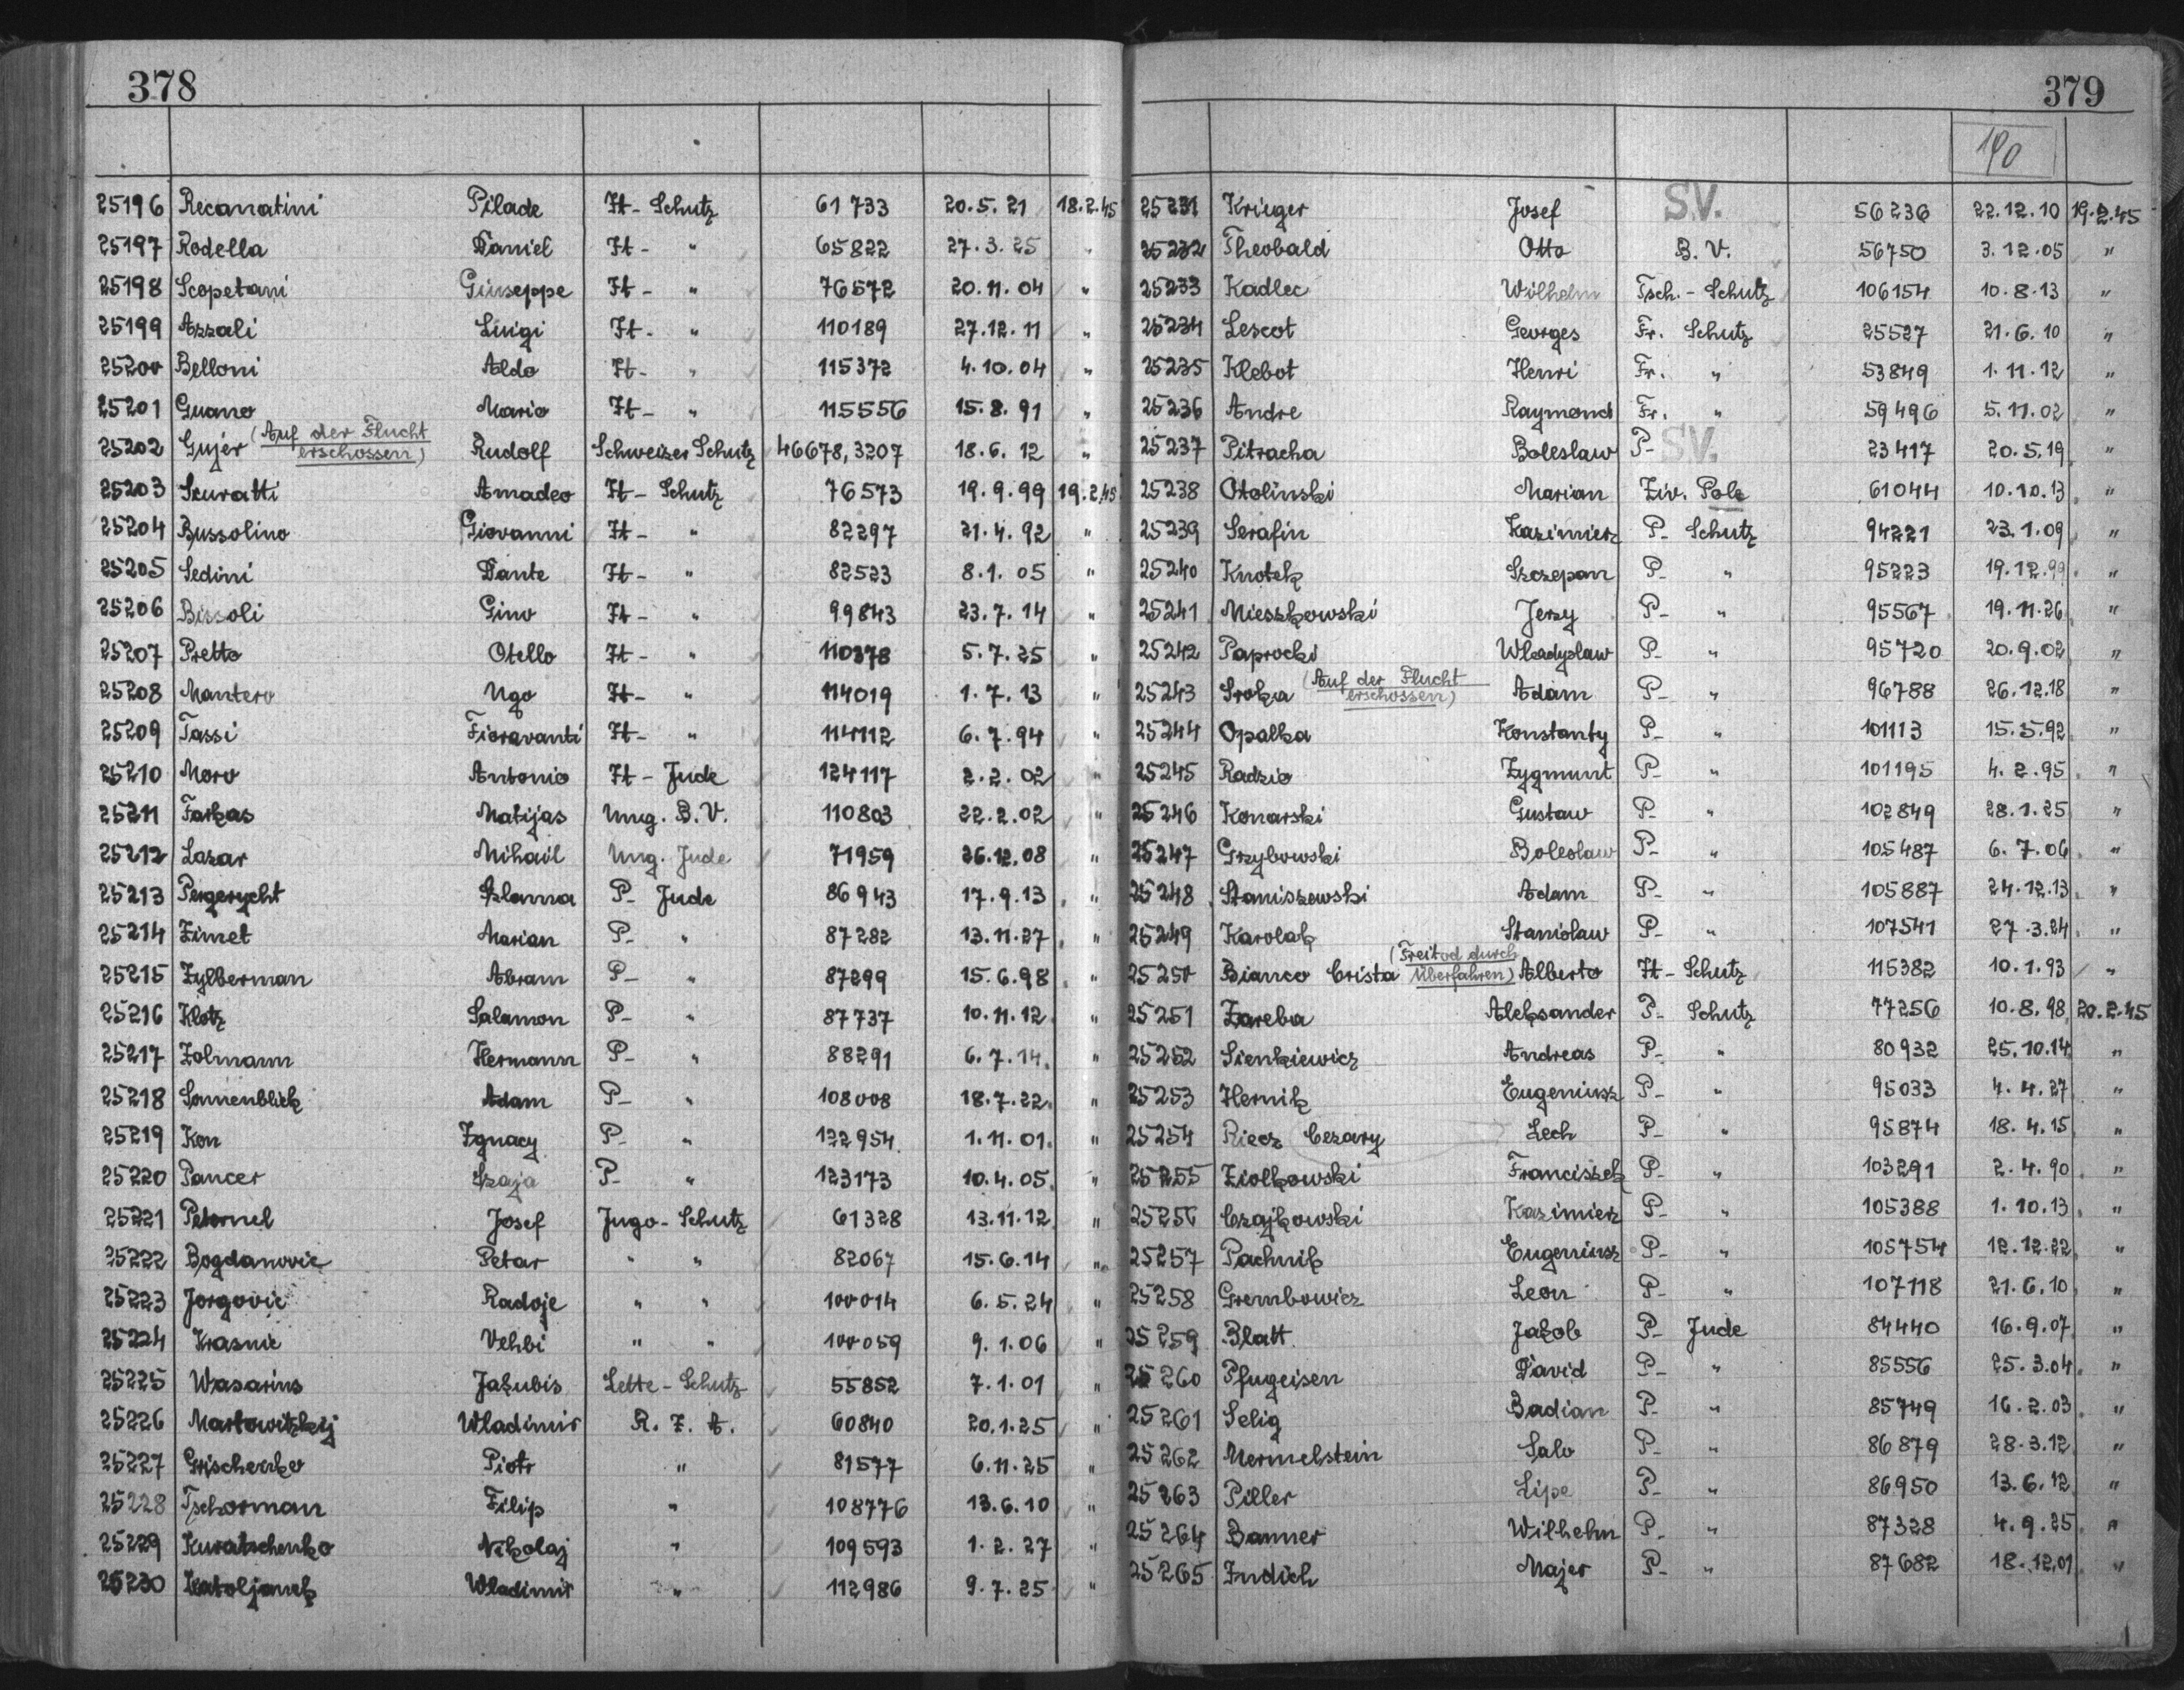 378
25196 Recanatini Pilade It- Schutz 61733 20.5.21 18.2.45
25197 Rodella Daniel It- " 65822 27.3.25 "
25198 Scopetani Giuseppe It- " 76572 20.11.04 "
25199 Azzali Luigi It- " 110189 27.12.11 "
25200 Belloni Aldo It- " 115372 4.10.04 "
25201 Guano Mario It- " 115556 15.8.91 "
25202 Gujer (Auf der Flucht erschossen) Rudolf Schweizer Schutz 46678,3207 18.6.12 "
25203 Scuratti Amadeo It- Schutz 76573 19.9.99 19.2.45
25204 Bussolino Giovanni It- " 82297 21.4.92 "
25205 Sedini Dante It- " 82523 8.1.05 "
25206 Bissoli Gino It- " 99843 23.7.14 "
25207 Pretto Otello It- " 110378 5.7.25 "
25208 Mantero Ugo It- " 114019 1.7.13 "
25209 Tassi Fioravanti It- " 114112 6.7.94 "
25210 Moro Antonio It- Jude 124117 2.2.02 "
25211 Farkas Matijas Ung. B.V. 110803 22.2.02 "
25212 Lazar Mihail Ung. Jude 71959 26.12.08 "
25213 Pergerycht Szlama P- Jude 86943 17.9.13 "
25214 Zimet Marian P- " 87282 13.11.27 "
25215 Zylberman Abram P- " 87299 15.6.98 "
25216 Klotz Salamon P- " 87737 10.11.12 "
25217 Zolmann Hermann P- " 88291 6.7.14 "
25218 Sonnenblick Adam P- " 108008 18.7.22 "
25219 Kon Ignacy P- " 122954 1.11.01 "
25220 Pancer Szaja P- " 123173 10.4.05 "
25221 Peternel Josef Jugo- Schutz 61328 13.11.12 "
25222 Bogdanovic Petar " " 82067 15.6.14 "
25223 Jorgovic Radoje " " 100014 6.5.24 "
25224 Krasnic Vehbi " " 100059 9.1.06 "
25225 Wasarins Jakubis Lette- Schutz 55852 7.1.01 "
25226 Martowitzkij Wladimir R.Z.A. 60840 20.1.25 "
25227 Grischenko Piotr " 81577 6.11.25 "
25228 Tschorman Filip " 108776 13.6.10 "
25229 Kuratschenko Nikolaj " 109593 1.2.27 "
25230 Wladimir " 112986 9.7.25 "
379
190
25231 Krieger Josef SV. 56236 22.12.10 19.2.45
25232 Theobald Otto B.V. 56750 3.12.05 "
25233 Kadlec Wilhelm Tsch.- Schutz 106154 10.8.13 "
25234 Lescot Georges Fr. Schutz 25527 21.6.10 "
25235 Klebot Henri Fr. " 53849 1.11.12 "
25236 Andre Raymond Fr. " 59496 5.11.02 "
25237 Pitracha Boleslaw P- SV. 23417 20.5.19 "
25238 Otolinski Marian Ziv. Pole 61044 10.10.13 "
25239 Serafin Kazimierz P- Schutz 94221 23.1.09 "
25240 Knotek Szczepan P- " 95223 19.12.99 "
25241 Mieszkowski Jerzy P- " 95567 19.11.26 "
25242 Paprocki Wladyslaw P- " 95720 20.9.02 "
25243 Sroka (Auf der Flucht erschossen) Adam P- " 96788 26.12.18 "
25244 Opalka Konstanty P- " 101113 15.5.92 "
25245 Radzio Zygmunt P- " 101195 4.2.95 "
25246 Konarski Gustaw P- " 102849 28.1.25 "
25247 Grzybowski Boleslaw P- " 105487 6.7.06 "
25248 Staniszewski Adam P- " 105887 24.12.13 "
25249 Karolak Stanislaw P- " 107541 27.3.24 "
25250 Bianco Crista (Freitod durch Überfahren) Alberto It- Schutz 115382 10.1.93 "
25251 Zareba Aleksander P- Schutz 77256 10.8.98 20.2.45
25252 Sienkiewicz Andreas P- " 80932 25.10.14 "
25253 Hernik Eugeniusz P- " 95033 4.4.27 "
25254 Riecz Cezary Lech P- " 95874 18.4.15 "
25255 Ziolkowski Franciszek P- " 103291 2.4.90 "
25256 Czajkowski Kazimierz P- " 105388 1.10.13 "
25257 Pachnik Eugeniusz P- " 105754 12.12.22 "
25258 Grembowicz Leon P- " 107118 21.6.10 "
25259 Blatt Jakob P- Jude 84440 16.9.07 "
25260 Pfugeisen David P- " 85556 25.3.04 "
25261 Selig Badian P- " 85749 16.2.03 "
25262 Mermelstein Salo P- " 86879 28.3.12 "
25263 Piller Lipe P- " 86950 13.6.12 "
25264 Banner Wilhelm P- " 87328 4.9.25 "
25265 Indich Majer P- " 87682 18.12.01 "